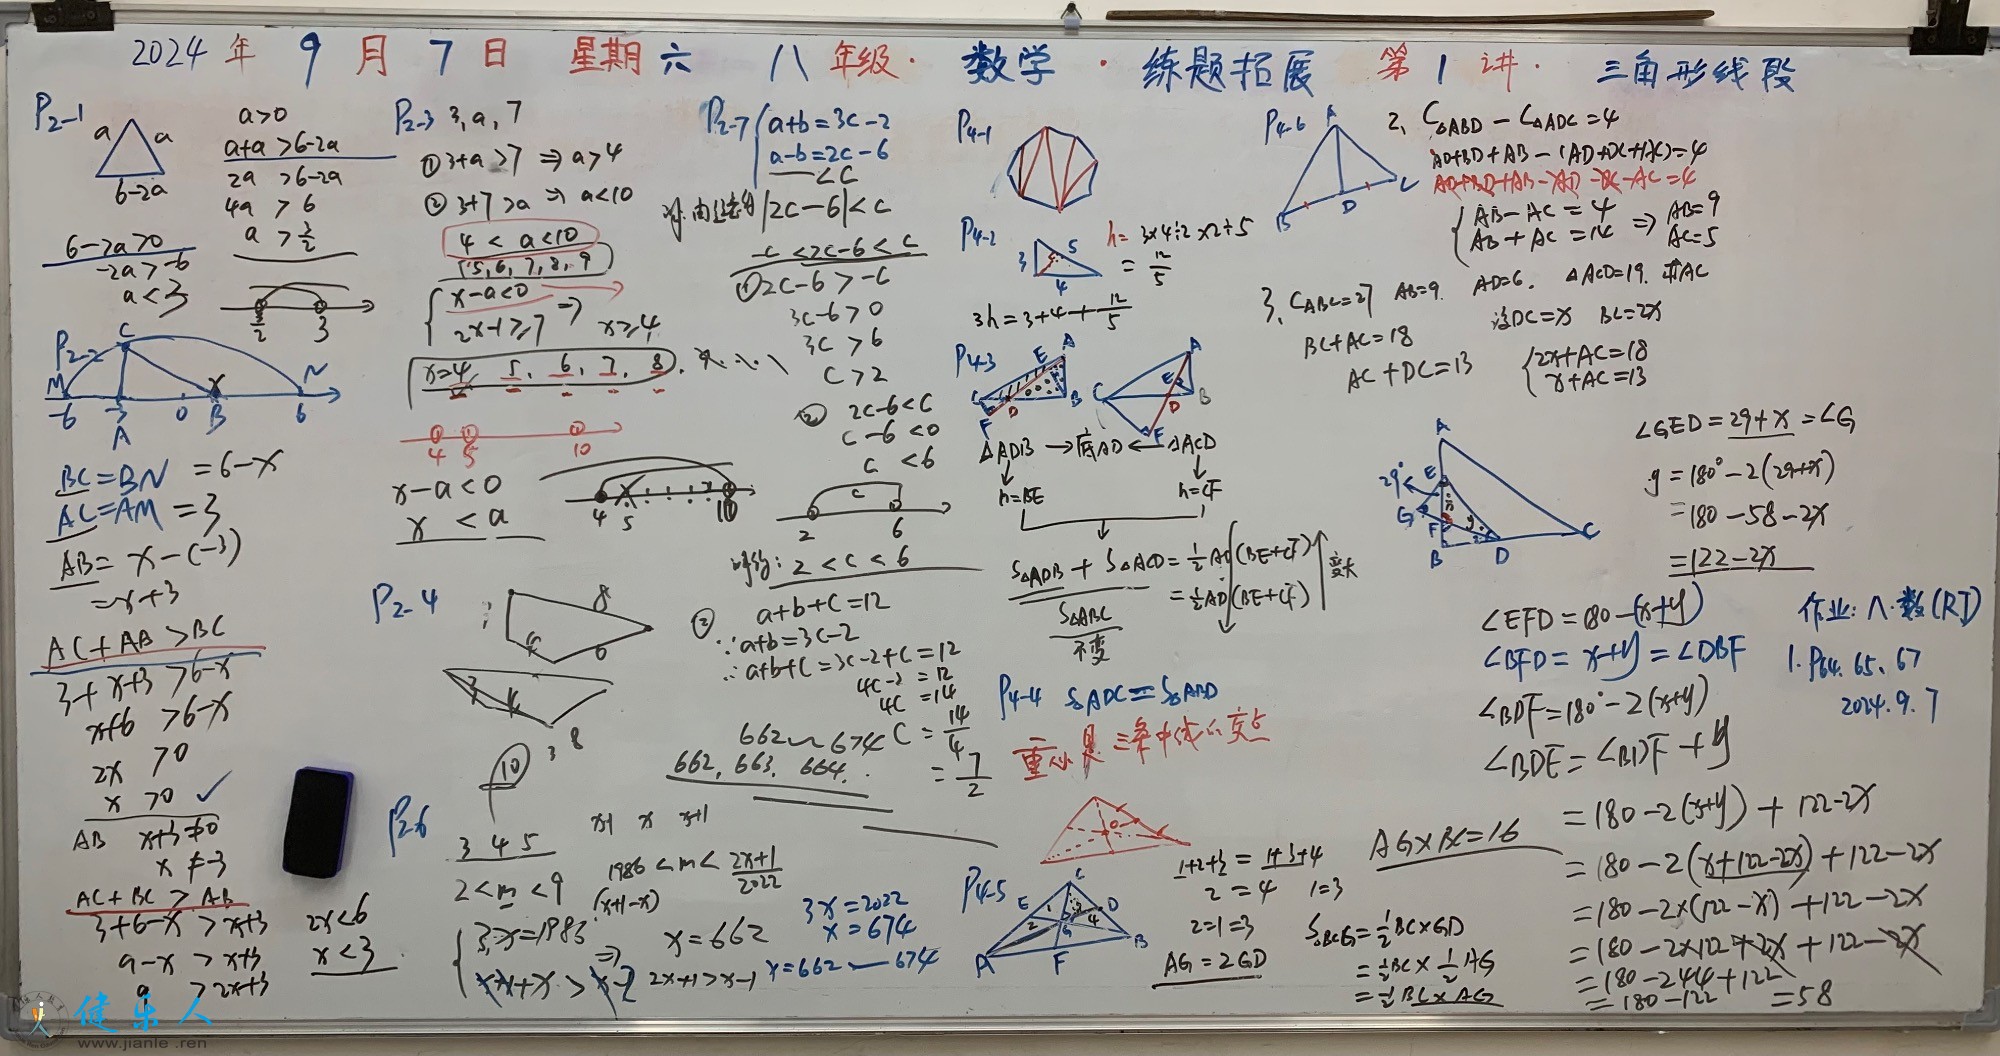 2024年9月7日 星期六 八年级·数学·练题拓展 第1讲·三角形线段
P2-1
a a
6-2a
a>0
a+a>6-2a
2a>6-2a
4a>6
a>3/2
6-2a>0
-2a>-6
a<3
3/2 3
P2-2
C
M N
x
-6 -3 0 B 6
A
BC=BN=6-x
AC=AM=3
AB=x-(-3)
=x+3
AC+AB>BC
3+x+3>6-x
x+6>6-x
2x>0
x>0 ✓
AB x+3≠0
x≠-3
AC+BC>AB
3+6-x>x+3
9-x>x+3
9>2x+3
2x<6
x<3
P2-3 3,a,7
①3+a>7⇒a>4
②3+7>a⇒a<10
4<a<10
5,6,7,8,9
x-a<0
2x-1≥7 ⇒ x≥4
x=4, 5, 6, 7, 8,
4 5 10
x-a<0
x<a
4 5 10
P2-4
8
4 6
3 4
10 3 8
P2-6
3 4 5
2<m<9
x-1 x x+1
1986<m<
2x+1
2022
(x+1-x)
3x=1983
⇒ x=662
2x+1>x-1
3x=2022
x=674
x=662—674
P2-7
a+b=3c-2
a-b=2c-6
<c
|2c-6|<c
-c<2c-6<c
①2c-6>-c
3c-6>0
3c>6
c>2
② 2c-6<c
c-6<0
c<6
c
2 6
2<c<6
② a+b+c=12
∵a+b=3c-2
∴a+b+c=3c-2+c=12
4c-2=12
4c=14
c=14/4
=7/2
662~674
662, 663, 664.
P4-1
P4-2
3 5
4
h=3×4÷2×2÷5
=12/5
3h=3+4+12/5
P4-3
A E C D B F
A E C D B F
△ADB→底AD←△ACD
h=BE h=CF
S△ADB+S△ACD=½AD(BE+CF)
=½AD(BE+CF)
变大
S△ABC
不变
P4-4 S△ADC=S△ABD
重心是三条中线的交点
P4-5
C E D G A F B
1 2 3 4
1+2+3=1+3+4
2=4 1=3
2=1=3
AG=2GD
AG×BC=16
S△BCG=½BC×GD
=½BC×½AG
=¼BC×AG
P4-6
A B D C
2、C△ABD-C△ADC=4
AD+BD+AB-(AD+DC+AC)=4
AD+BD+AB-AD-DC-AC=4
AB-AC=4
AB+AC=14
⇒ AB=9
AC=5
3、C△ABC=27 AB=9. AD=6. △ACD=19. 求AC
BC+AC=18
设DC=x BC=2x
AC+DC=13
2x+AC=18
x+AC=13
A 29° E G F B D C
x y
∠GED=29+x=∠G
y=180°-2(29+x)
=180-58-2x
=122-2x
∠EFD=180-(x+y)
∠BFD=x+y=∠DBF
∠BDF=180°-2(x+y)
∠BDE=∠BDF+y
=180-2(x+y)+122-2x
=180-2(x+122-2x)+122-2x
=180-2×(122-x)+122-2x
=180-2×122+2x+122-2x
=180-244+122
=180-122 =58
作业:八·数(RJ)
1.P64.65、67
2024.9.7
健乐人
www.jianle.ren